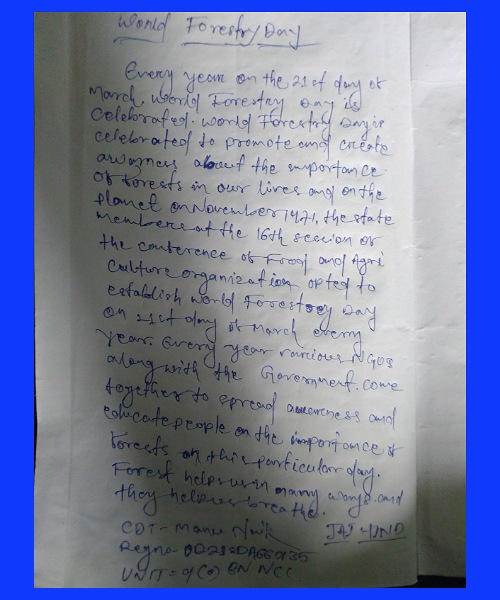 World Forestry Day
Every year on the 21st day of
March, World Forestry Day is
Celebrated. World Forestry Day is
celebrated to promote and create
awarness about the importance
of forests in our lives and on the
planet on November 1971, the state
members at the 16th session of
the conference of Food and Agri
culture organization opted to
establish world Forestry Day
on 21st day of March every
year. Every year various NGOs
along with the Government come
together to spread awareness and
educate people on the importance of
forests on this particular day.
Forest helps us in many ways and
they helps us breathe.
CDT- Manu JAI HIND
Regno-
UNIT = BN NCC